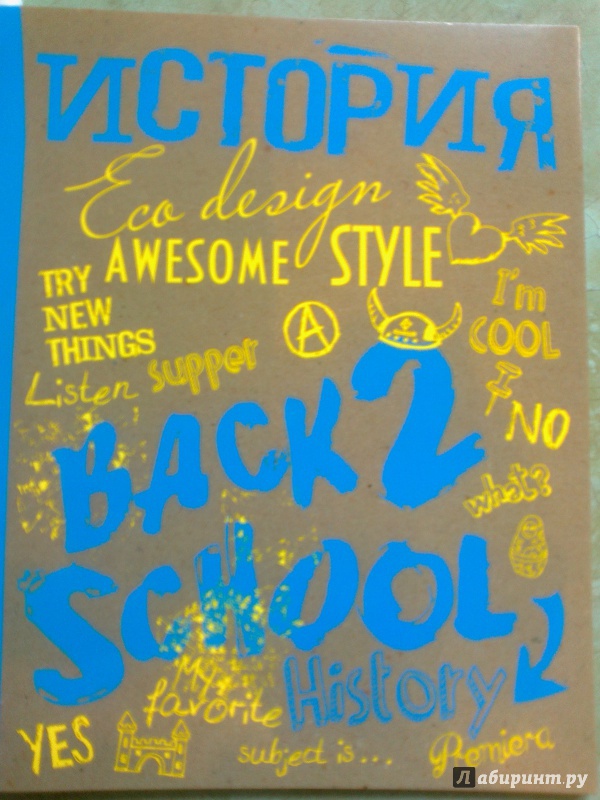 ИСТОРИЯ
Eco design
AWESOME STYLE
TRY
NEW
THINGS
I'm
COOL
A
Listen supper
NO
BACK 2
what?
SCHOOL
My
favorite
History
YES
subject is...
Premiera
Лабиринт.ру